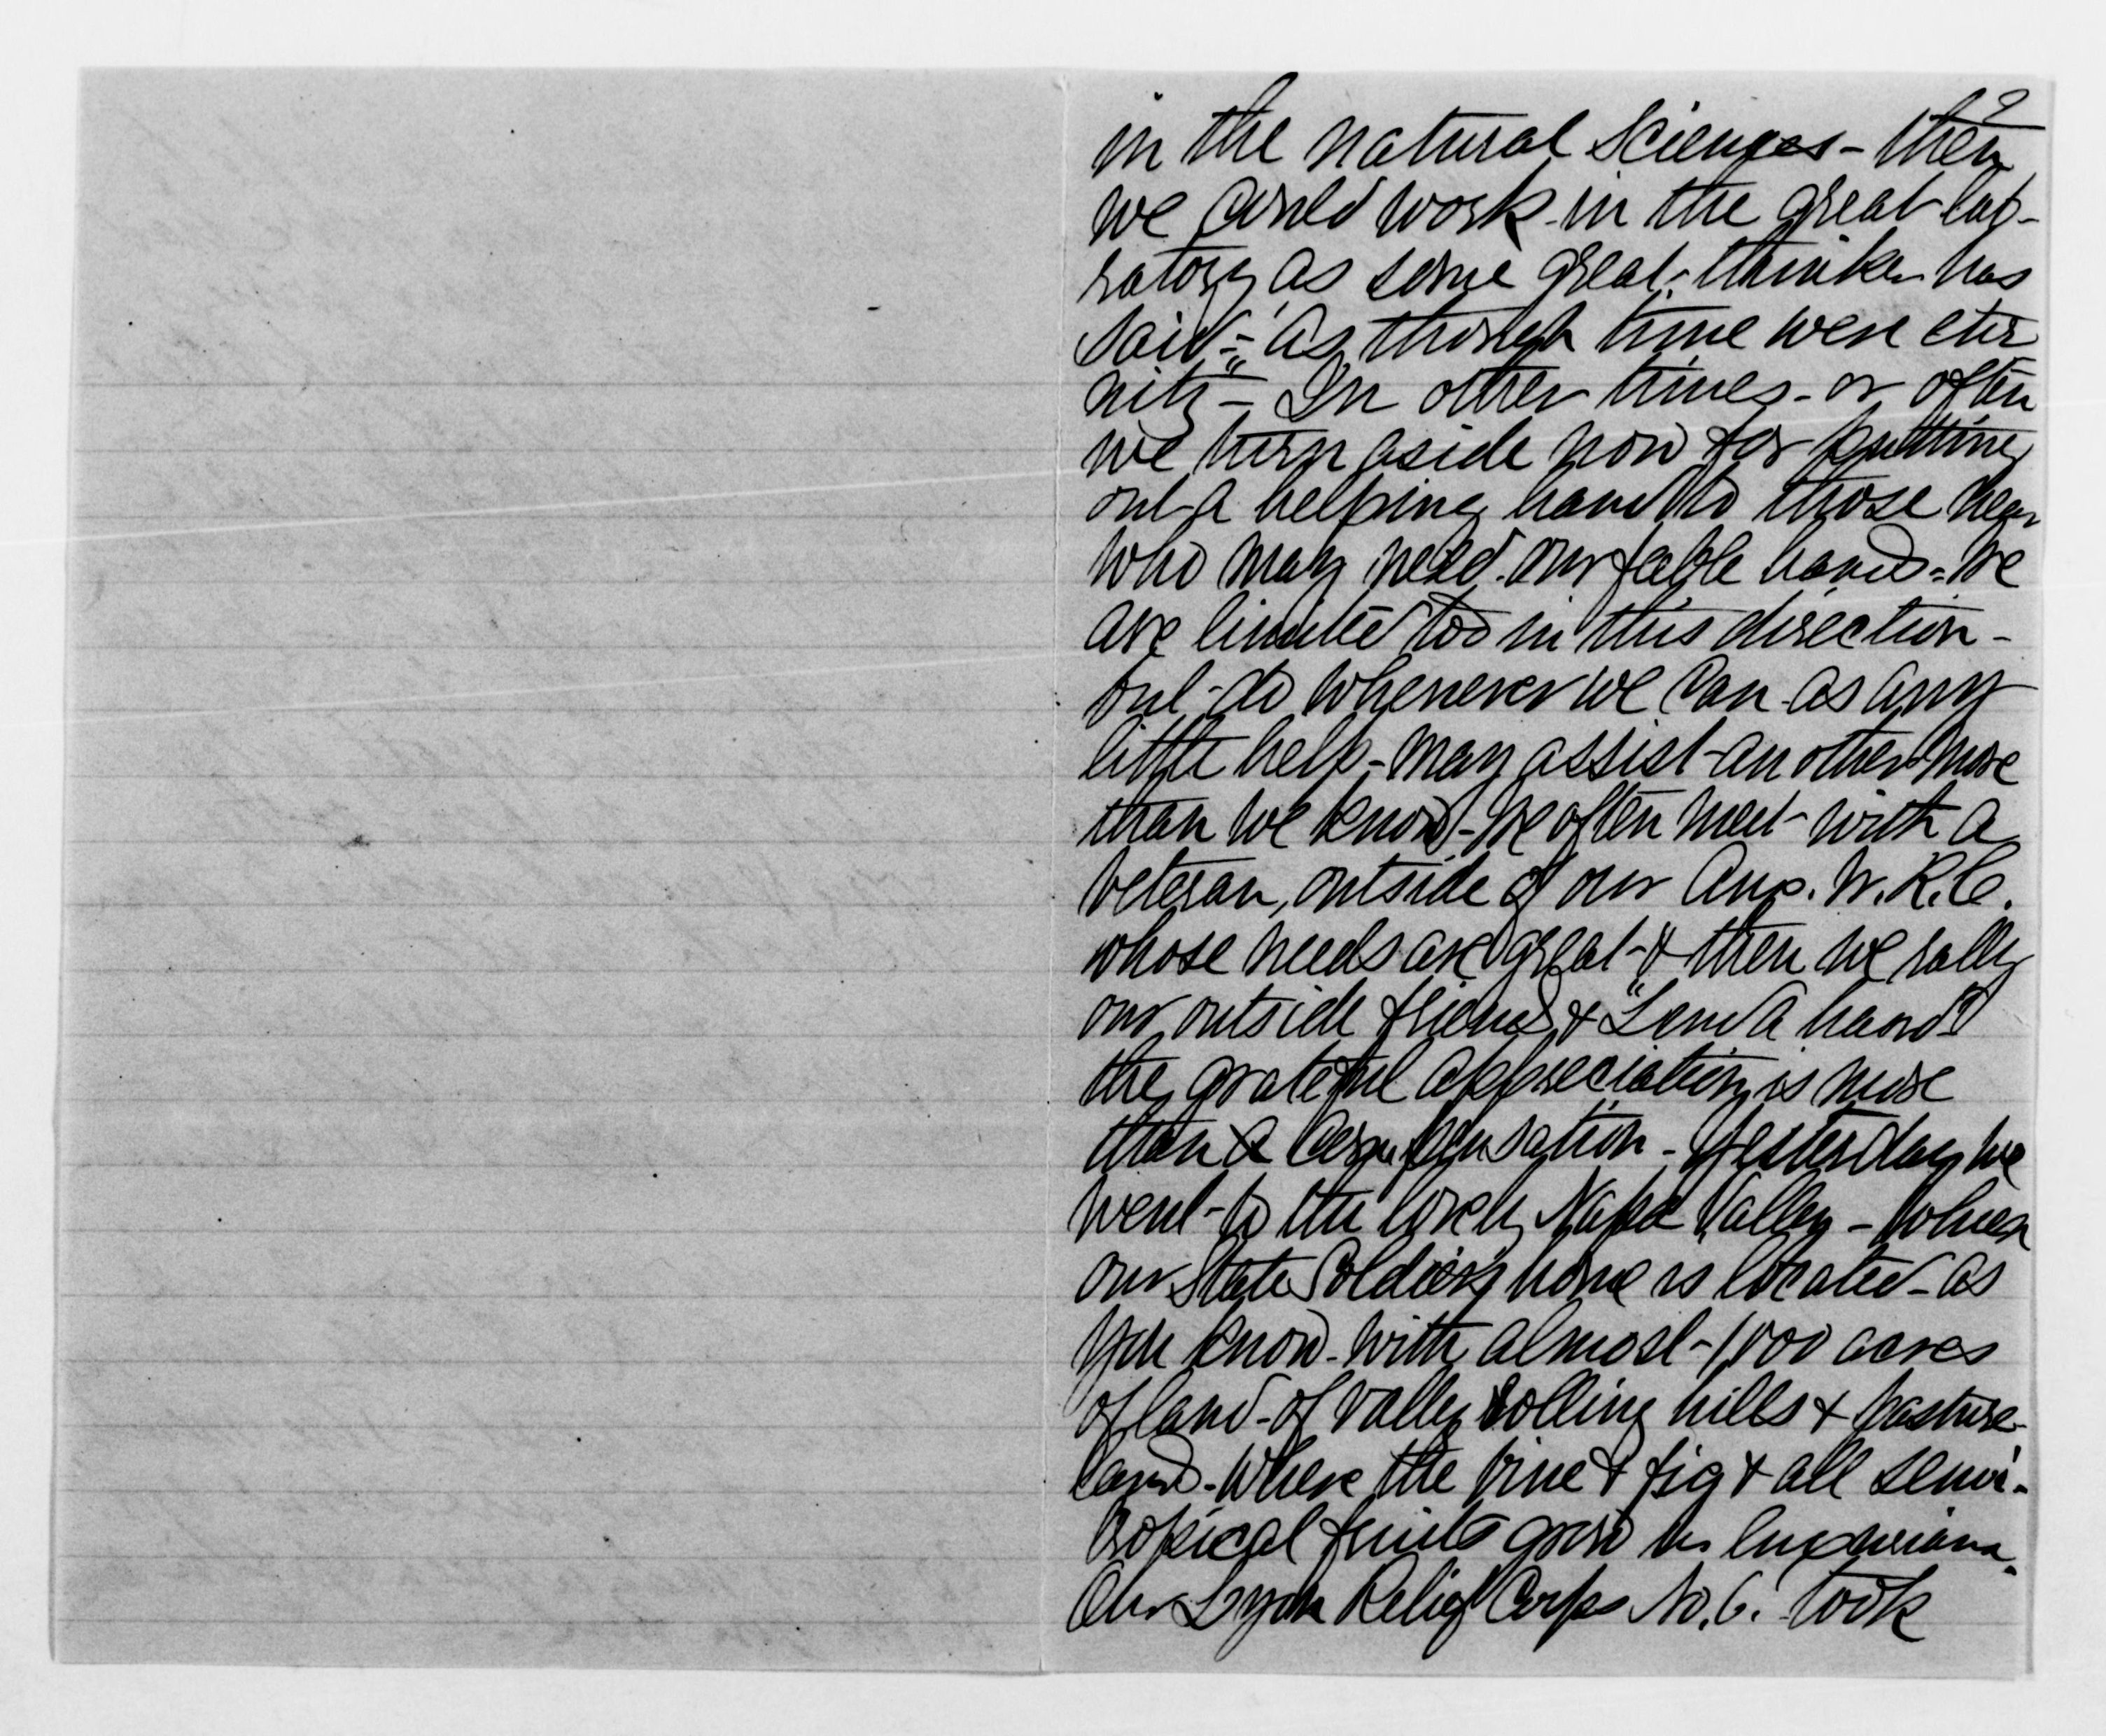 2
in the natural sciences - then
we could work in the great lab-
ratory as some great thinker has
said - "as though time were eter
nity - In other times - or often
we turn aside now for putting
out a helping hand to those near
who may need our feeble hands - We
are limited too in this direction -
but do whenever we can - as any
little help - may assist another more
than we know - We often meet with a
veteran, outside of our Aux. W.R.C.
whose needs are great - & then we rally
our outside friends & "Lend a hand"
the grateful appreciation is more
than a compensation - Yesterday we
went to the lovely Napa Valley - where
our State Soldiers home is located - as
you know - with almost 1,000 acres
of land - of valley rolling hills & pasture
land - where the vine & fig & all semi-
tropical fruits grow in
Our Lyon Relief Corps No. 6. took